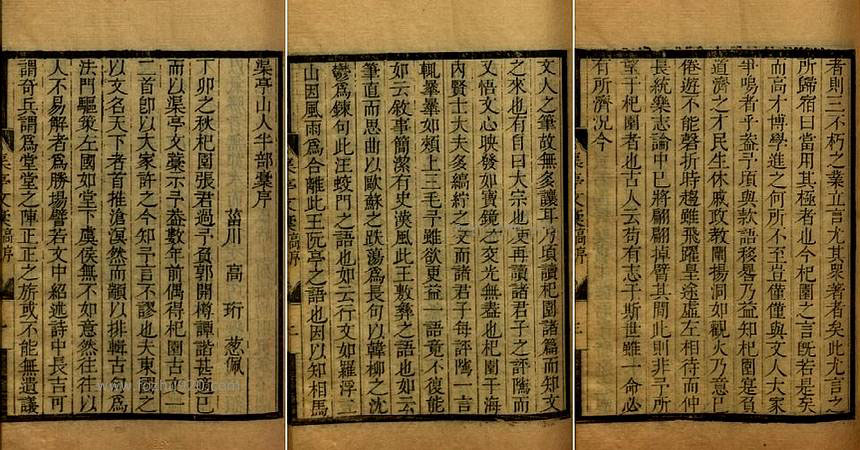 渠亭山人半部藁序
菑川 高 珩 葱佩
丁卯之秋杞園張君過予負郭開樽譚諧甚歡已
而以渠亭文藁示予葢數年前偶得杞園古文一
二首卽以大家許之今知予言不謬也夫東國之
以文名天下者首推滄溟然而顓以排輯古文為
法門驅策左國如堂下虞侯無不如意然往往以
人不易解者為勝場譬若文中紹述詩中長吉可
謂奇兵謂為堂堂之陣正正之旂或不能無遺議
文人之筆故無多讓耳乃頃讀杞園諸篇而知文
之來也有自曰大宗也更再讀諸君子之評隲而
又悟文心映發如寶鏡之交光無盡也杞園于海
內賢士大夫多縞紵之交而諸君子每評隲一言
輒纍纍如頰上三毛予雖欲更益一語竟不復能
如云敘事簡潔有史漢風此王敷彝之語也如云
筆直而思曲以歐蘇之跌蕩為長句以韓柳之沈
鬱為鍊句此汪蛟門之語也如云行文如羅浮二
山因風雨為合離此王阮亭之語也因以知相馬
者則三不朽之業立言尤其眾著者矣此尤言之
所歸宿曰當用其極者也今杞園之言既若是矣
而高才博學進之何所不至豈僅僅與文人大家
爭鳴者乎葢予頃與款語移晷乃益知杞園寔負
道濟之才民生休戚政教闡揚洞如觀火乃意已
倦遊不能磬折時趨雖飛躍皇途虛左相待而仲
長統樂志論中已將翩翩掉臂其間此則非予所
望于杞園者也古人云苟有志于斯世雖一命必
有所濟況今